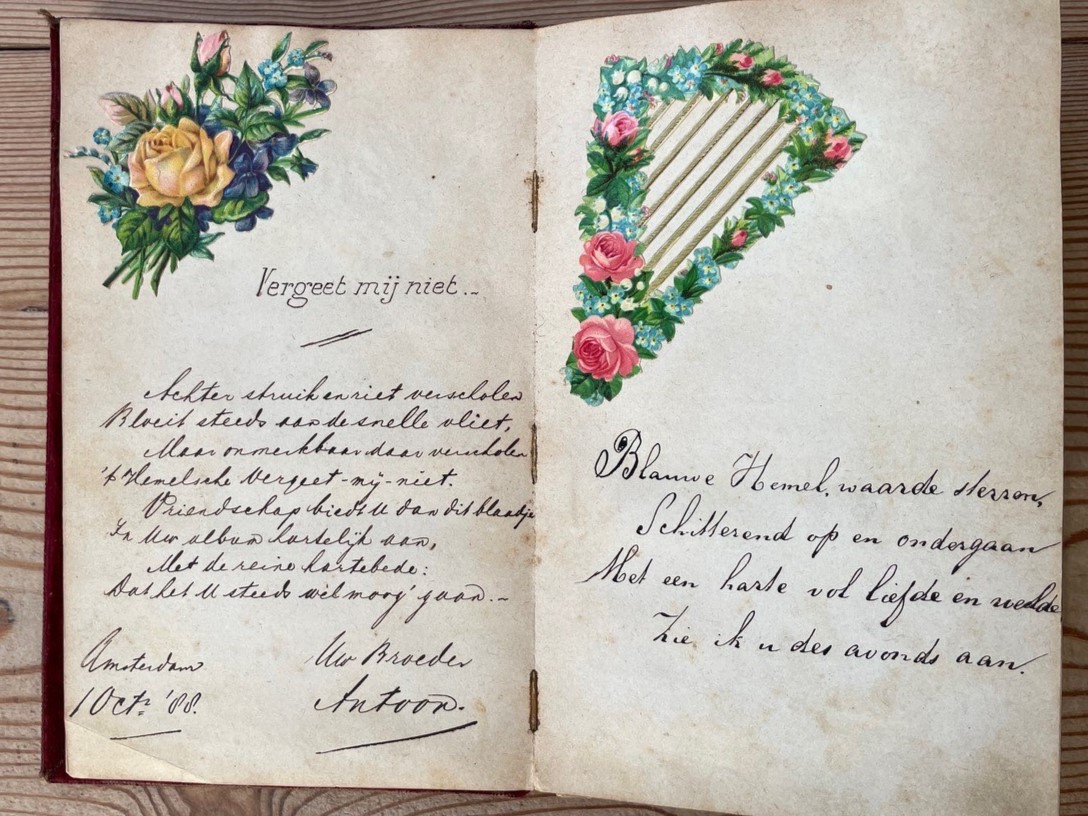 Vergeet mij niet..
Achter struik en riet verscholen
Bloeit steeds aan de snelle vliet,
Maar onmerkbaar daar verscholen
't Hemelsche Vergeet-mij-niet.
Vriendschap biedt U dan dit blaadje
In Uw album hartelijk aan,
Met de reine hartebede:
Dat het U steeds wèl moog' gaan.-
Amsterdam
1 Octr '88.
Uw Broeder
Antoon.
Blauwe Hemel, waarde sterren,
Schitterend op en ondergaan
Met een harte vol liefde en weelde
Zie ik u des avonds aan.